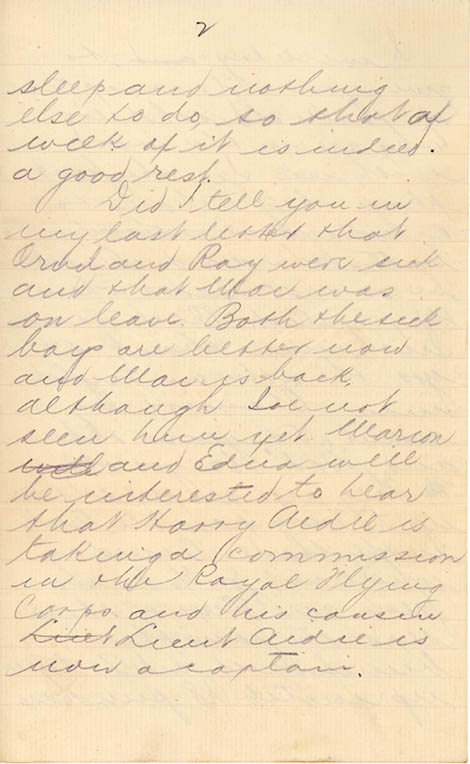 2
sleep and nothing
else to do, so that a
week of it is indeed
a good rest.
Did I tell you in
my last letter that
Orval and Ray were sick
and that Mac was
on leave. Both the sick
boys are better now
and Mac is back,
although I've not
seen him yet. Marion
will and Edna will
be interested to hear
that Harry Aidie is
taking a commission
in the Royal Flying
Corps and his cousin
Lieut Lieut Aidie is
now a captain.